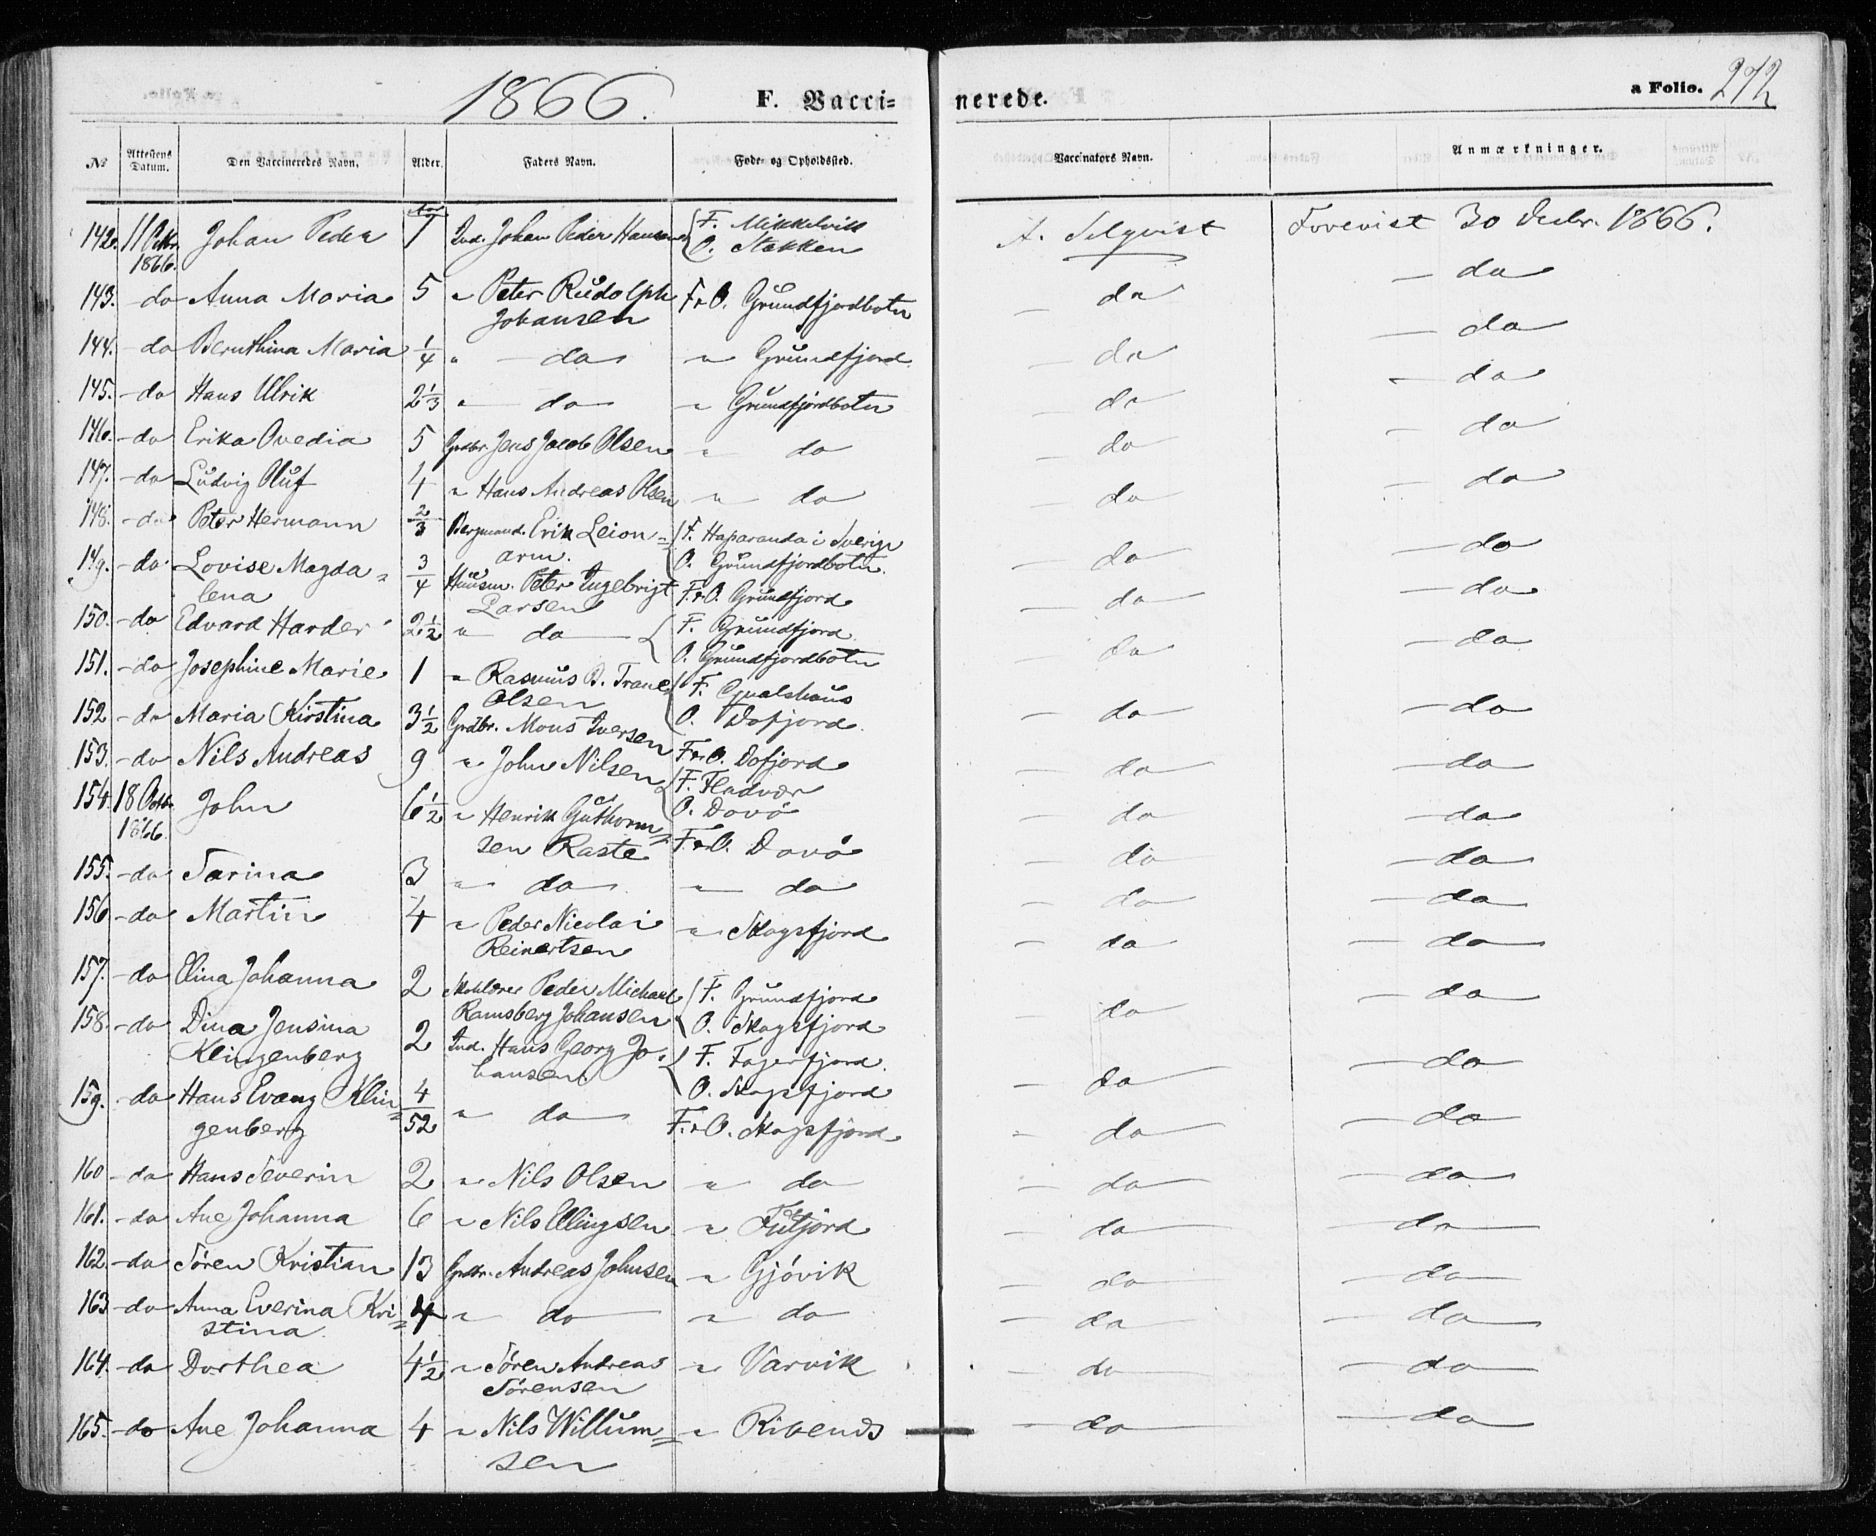 1866. F. Vacci= nerede. a Folio. 272
№ Attestens Datum. Den Vaccineredes Navn. Alder. Faders Navn. Føde- og Opholdssted. Vaccinators Navn. Anmærkninger.
142. 11 Oktbr. 1866. Johan Peder Aar 7 Ind. Johan Peder Hansen { F. Mikkelvik O. Stakken A. Selqvist Forevist 30 Decbr. 1866.
143. - do Anna Maria 5 " Peter Rudolph Johansen F & O. Grundfjordbotn - do - do
144. - do Beruthina Maria 1/4 " - do " Grundfjord - do - do
145. - do Hans Ulrik 2 1/3 " - do " Grundfjordbotn - do - do
146. - do Erika Ovedia 5 Grdbr. Jens Jacob Olsen " do - do - do
147. - do Ludvig Oluf 4 " Hans Andreas Olsen " do - do - do
148. - do Peter Hermann 2/3 Bergmand. Erik Leion= arm. { F. Haparanda i Sverige O. Grundfjordbotn. - do - do
149. - do Lovise Magda= lena 3/4 Huusm. Peter Ingebrigt Larsen F. & O. Grundfjord - do - do
150. - do Edvard Harder 2 1/2 " do { F. Grundfjord O. Grundfjordbotn - do - do
151. - do Josephine Marie 1 " Rasmus B. Trane Olsen { F. O. Dofjord. - do - do
152 - do Maria Kirstina 3 1/2 Grdbr. Mons Iversen F. & O. Dofjord - do - do
153. - do Nils Andreas 9 " John Nilsen { F. Fladvær O. Dovö - do - do
154. 18 Octbr. 1866. John 6 1/2 " Henrik Guthorm= sen Raste F. & O. Dovö - do - do
155. - do Sarina 3 " do " do - do - do
156 - do Martin 4 " Peder Nicolai Reinertsen " Skogsfjord - do - do
157. - do Elina Johanna 2 Skolelærer Peder Michael Ramsberg Johansen { F. Grundfjord O. Skogsfjord - do - do
158. - do Dina Jensina Klingenberg 2 Ind. Hans Georg Jo= hansen. { F. Fagerfjord. O. Skogsfjord - do - do
159. - do Hans Evang Klin= genberg 4/52 " do F. & O. Skogsfjord - do - do
160 - do Hans Severin 2 " Nils Olsen " do - do - do
161. - do Ane Johanna 6 " Nils Ellingsen " Futfjord - do - do
162. - do Sören Kristian 13 Grdbr. Andreas Johnsen " Gjövik - do - do
163 - do Anna Everina Kri= stina. 4 " do " do - do - do
164. - do Dorthea 4 1/2 " Sören Andreas Sörensen " Varvik - do - do
165. - do Ane Johanna 4 " Nils Willum= sen " - do - do